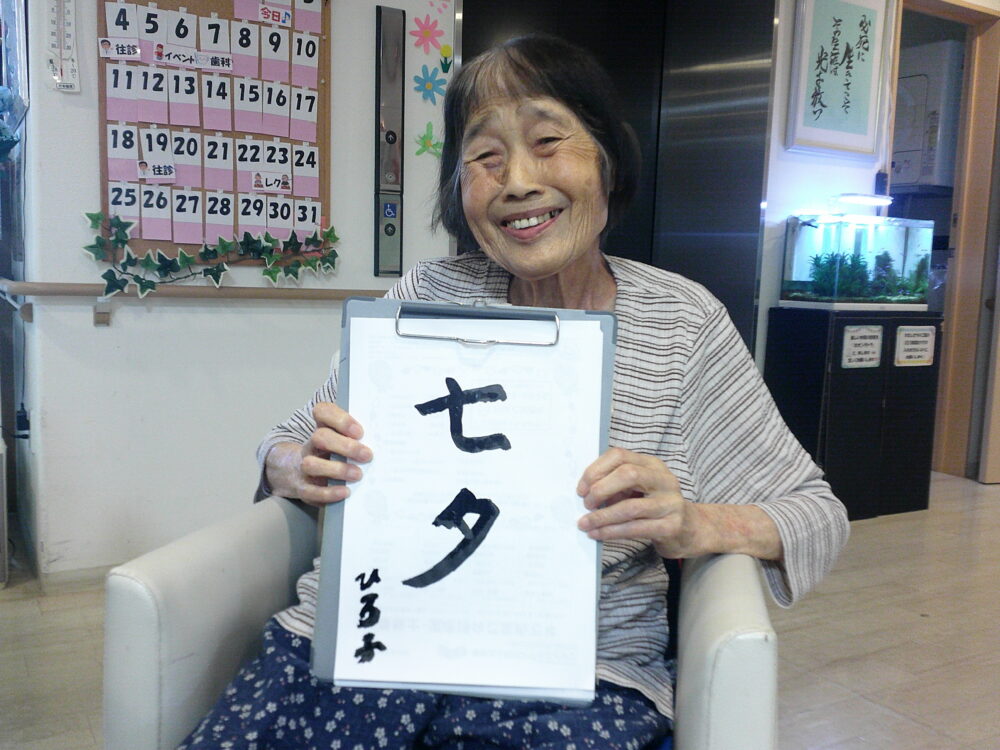 今日♪
4 5 6 7 8 9 10
往診 イベント 歯科
11 12 13 14 15 16 17
18 19 20 21 22 23 24
往診 レク
25 26 27 28 29 30 31
必死に
生きてこそ
その生涯は
光を放つ
七夕
ひろ子